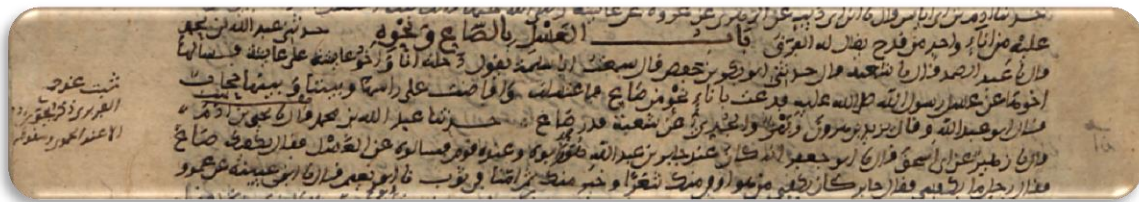 حدثنا ادم بن ابي اياس قال نا ابن ابي ذيب عن الزهري عن عروة عن عايشة
عليه من اناء واحد من قدح يقال له الفرق باب الغسل بالصاع ونحوه حدثني عبد الله بن محمد
قال نا عبد الصمد قال نا شعبة قال حدثني ابو بكر بن حفص قال سمعت ابا سلمة يقول دخلت انا واخو عايشة على عايشة فسالها
اخوها عن غسل رسول الله صلى الله عليه فدعت باناء نحو من صاع فاغتسلت وافاضت على راسها وبيننا وبينها حجاب
قال ابو عبد الله وقال يزيد بن هرون وبهز والجدي عن شعبة قدر صاع حدثنا عبد الله بن محمد قال نا يحيى بن ادم
قال نا زهير عن ابي اسحق قال نا ابو جعفر انه كان عند جابر بن عبد الله هو وابوه وعنده قوم فسالوه عن الغسل فقال يكفيك صاع
فقال رجل ما يكفيني فقال جابر كان يكفي من هو اوفى منك شعرا وخير منك ثم امنا في ثوب نا ابو نعيم قال نا ابن عيينة عن عمرو
ثبت عند
الفربري